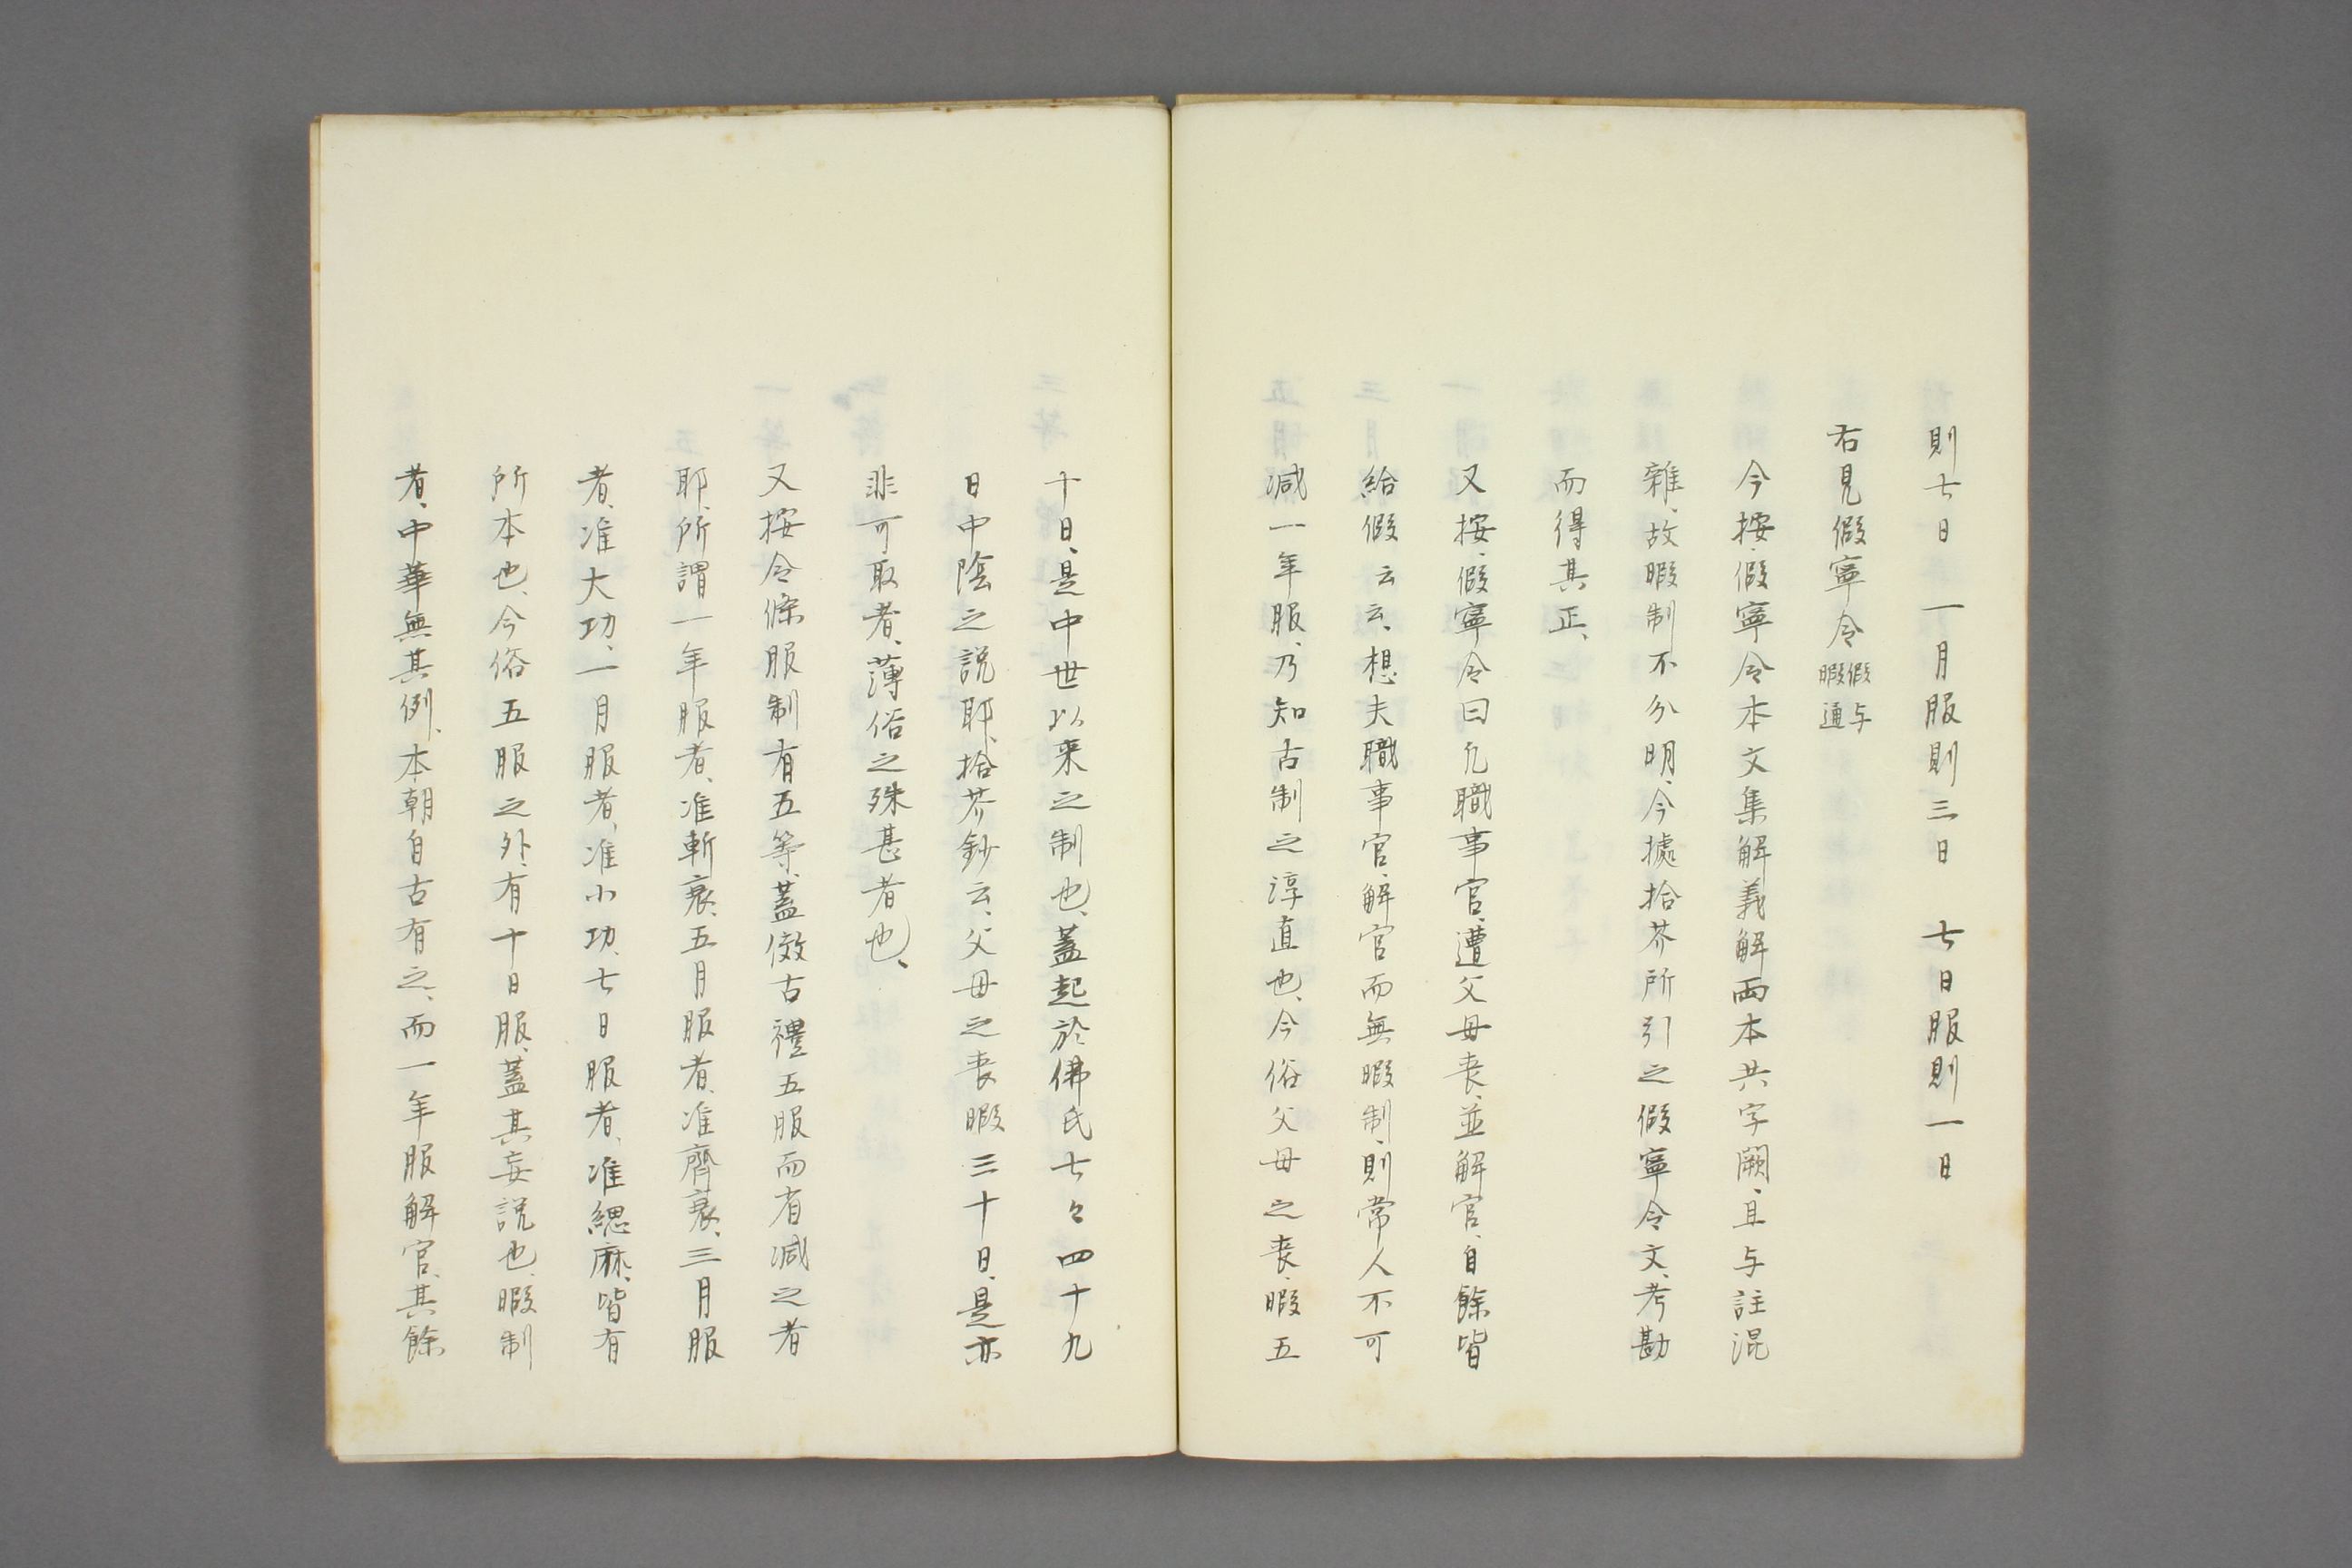 則七日　一月服則三日　七日服則一日
右見假寧令假与暇通
今按、假寧令令本文集解義解両本共字闕、且与註混
雜、故暇制不分明、今據拾芥所引之假寧令文、考勘
而得其正、
又按、假寧令曰凢職事官、遭父母喪、並解官、自餘皆
給假云云、想夫職事官、解官而無暇制、則常人不可
減一年服、乃知古制之淳直也、今俗父母之喪、暇五
十日、是中世以来之制也、蓋起於佛氏七々四十九
日中陰之説耶、拾芥鈔云、父母之喪暇三十日、是亦
非可取者、薄俗之殊甚者也、
又按令條服制有五等、蓋倣古禮五服而有減之者
耶、所謂一年服者、准斬衰、五月服者、准齊衰、三月服
者、准大功、一月服者、准小功、七日服者、准緦麻、皆有
所本也、今俗五服之外、有十日服、蓋其妄説也、暇制
者、中華無其例、本朝自古有之、而一年服解官、其餘